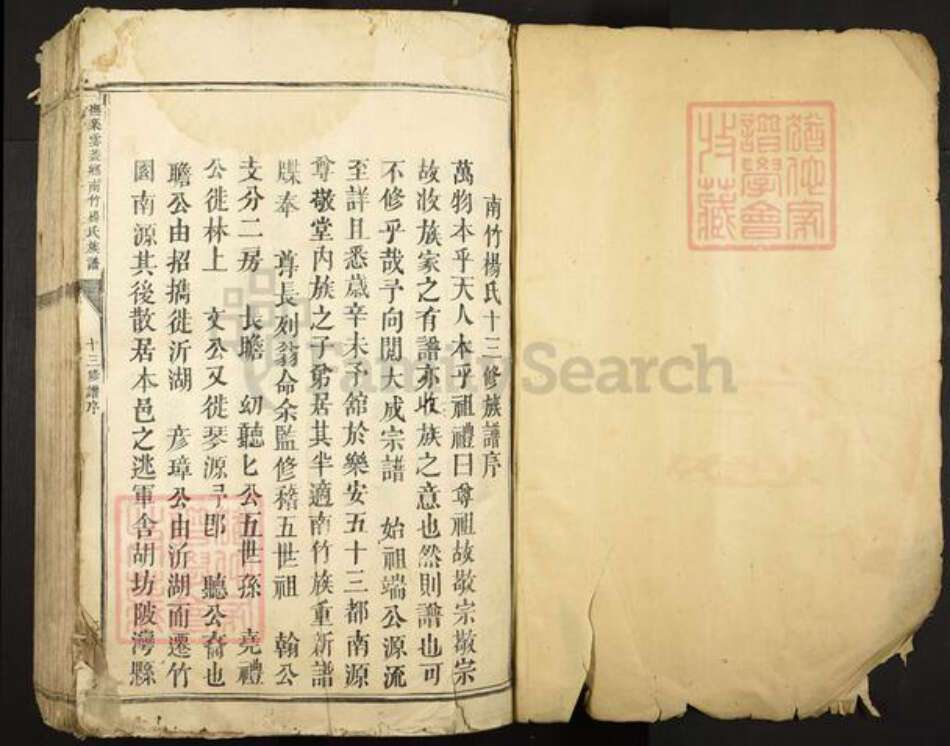 南竹楊氏十三修族譜序
萬物本乎天人本乎祖禮曰尊祖故敬宗敬宗
故收族家之有譜亦收族之意也然則譜也可
不修乎哉予向閱大成宗譜 始祖端公源流
至詳且悉歲辛未予舘於樂安五十三都南源
尊敬堂內族之子弟居其半適南竹族重新譜
牒奉 尊長列翁命余監修稽五世祖 翰公
支分二房 長瞻 幼聽匕公五世孫 堯禮
公徙林上 文公又徙琴源 聽公裔也
瞻公由招攜徙沂湖 彥璋公由沂湖而遷竹
園南源其後散居本邑之逃軍舍胡坊陂灣縣
雲蓋鄉南竹楊氏族譜
十三修譜序
FamilySearch